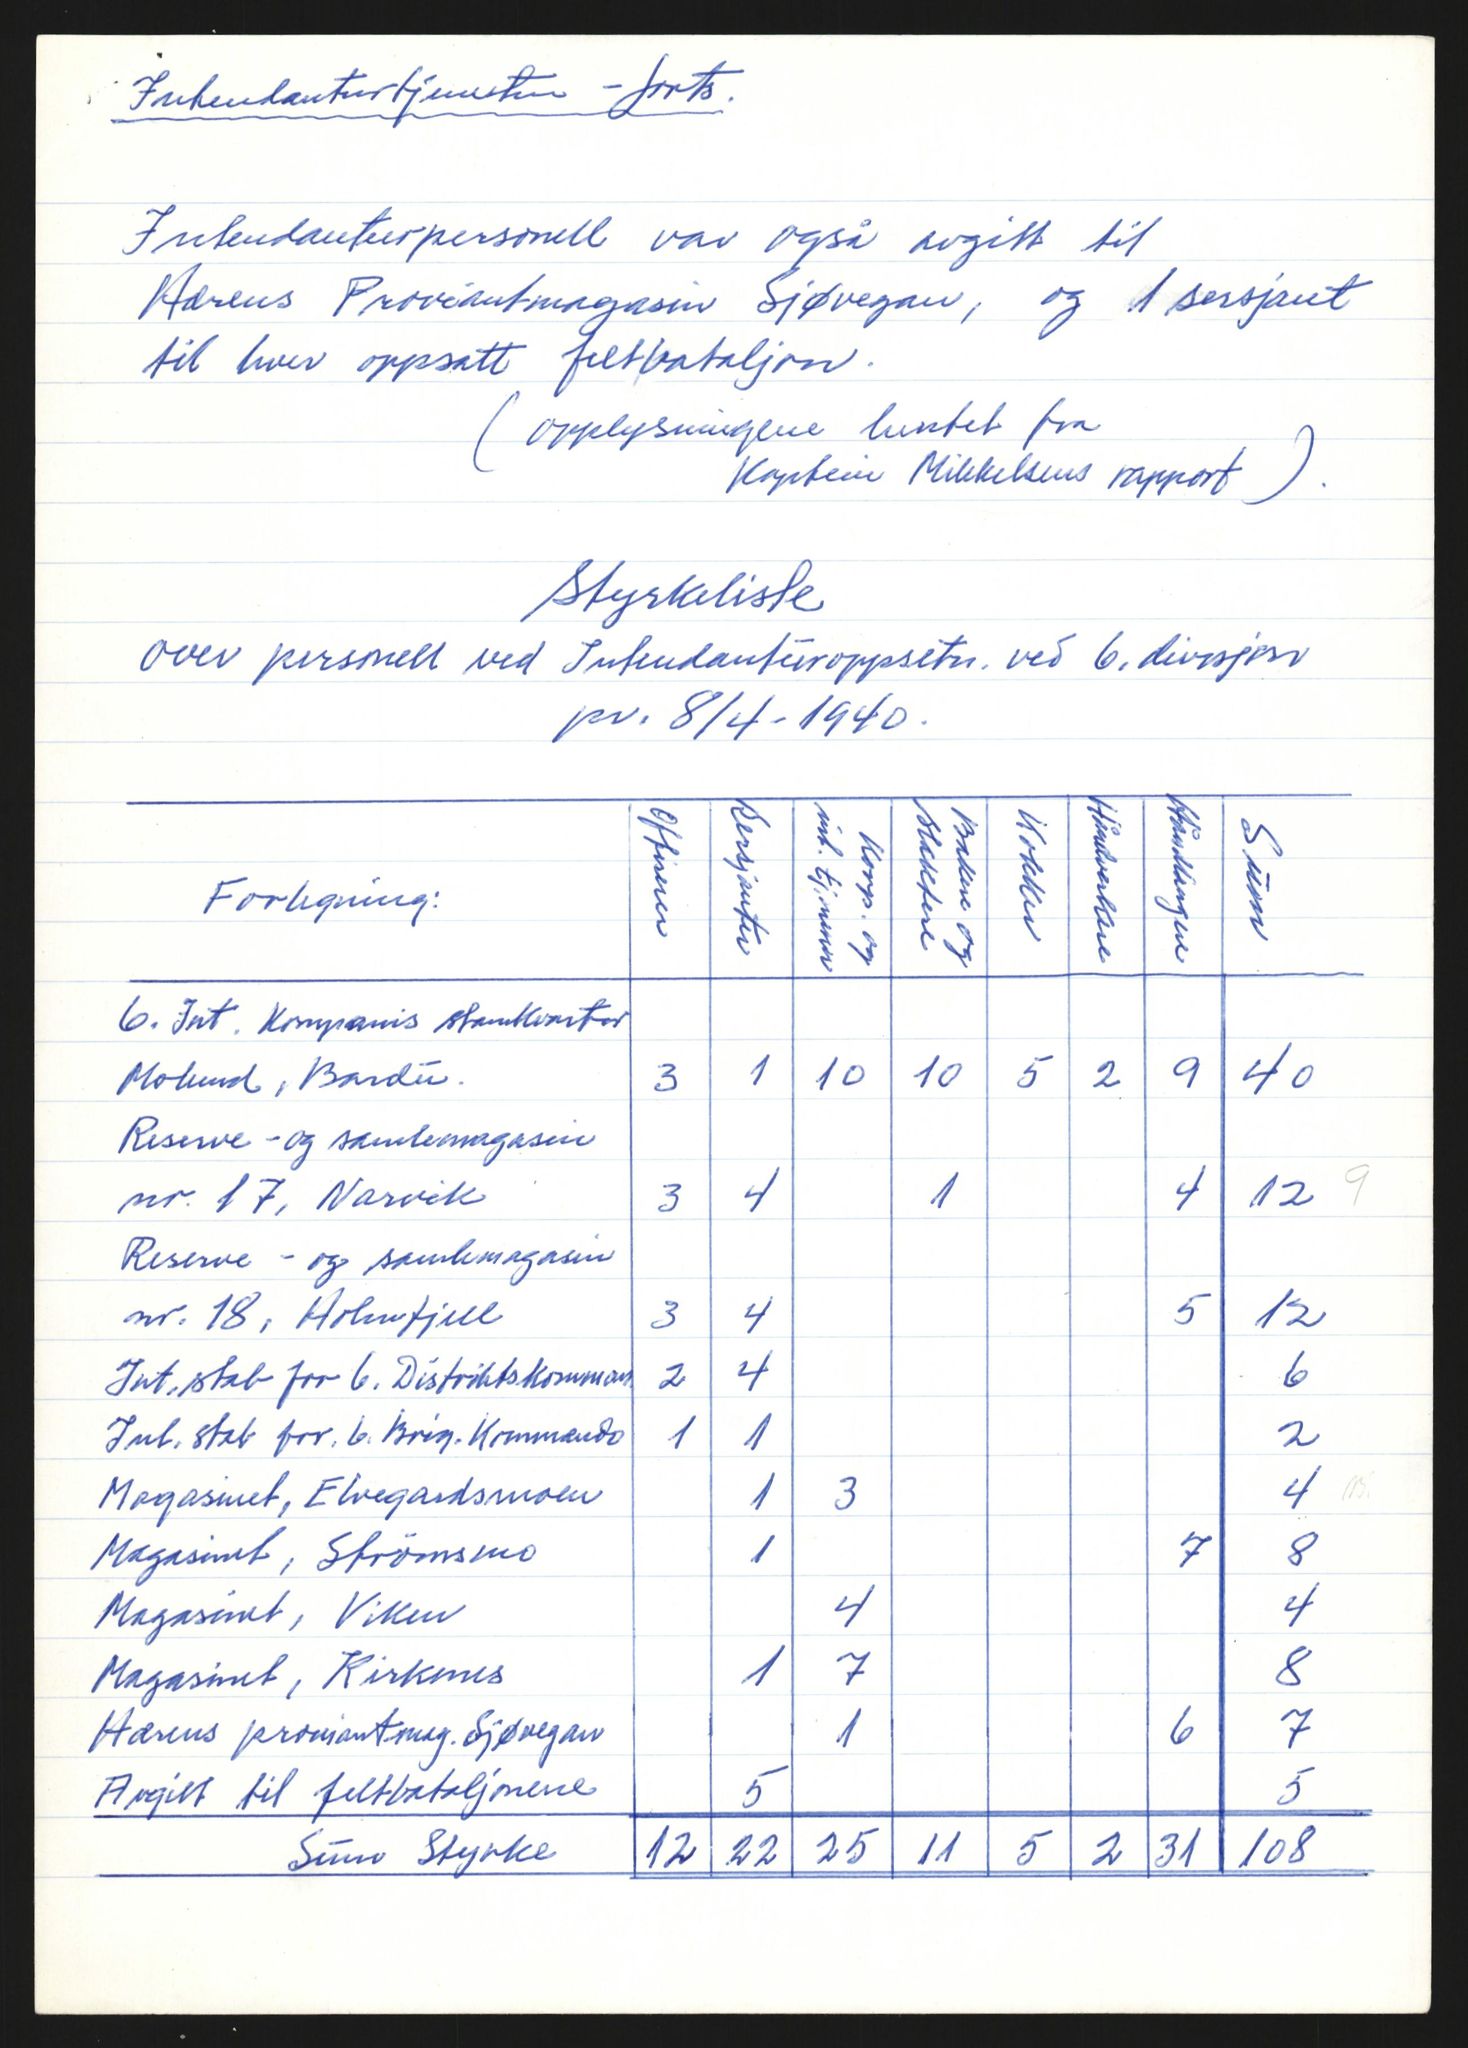 Intendanturtjenesten - forts.
Intendanturpersonell var også avgitt til
Hærens Proviantmagasin Sjøvegan, og 1 sersjant
til hver oppsatt feltbataljon.
( opplysningene hentet fra
Kaptein Mikkelsens rapport ).
Styrkeliste
over personell ved Intendanturoppsetn. ved 6. divisjon
pr. 8/4-1940.
Forlegning: Offiserer Sersjanter Korp. og int. tj.menn Bakere og slaktere Kokker Håndverkere Håndlangere Sum
6. Int. Kompanis stamkvarter
Molund, Bardu. 3 1 10 10 5 2 9 40
Reserve - og samlemagasin
nr. 17, Narvik 3 4 1 4 12 9
Reserve - og samlemagasin
nr. 18, Holmfjell 3 4 5 12
Int. stab for 6. Distriktskomman. 2 4 6
Int. stab for. 6. Brig. Kommando 1 1 2
Magasinet, Elvegardsmoen 1 3 4
Magasinet, Strömsmo 1 7 8
Magasinet, Viken 4 4
Magasinet, Kirkenes 1 7 8
Hærens proviantmag. Sjøvegan 1 6 7
Avgitt til feltbataljonene 5 5
Sum Styrke 12 22 25 11 5 2 31 108